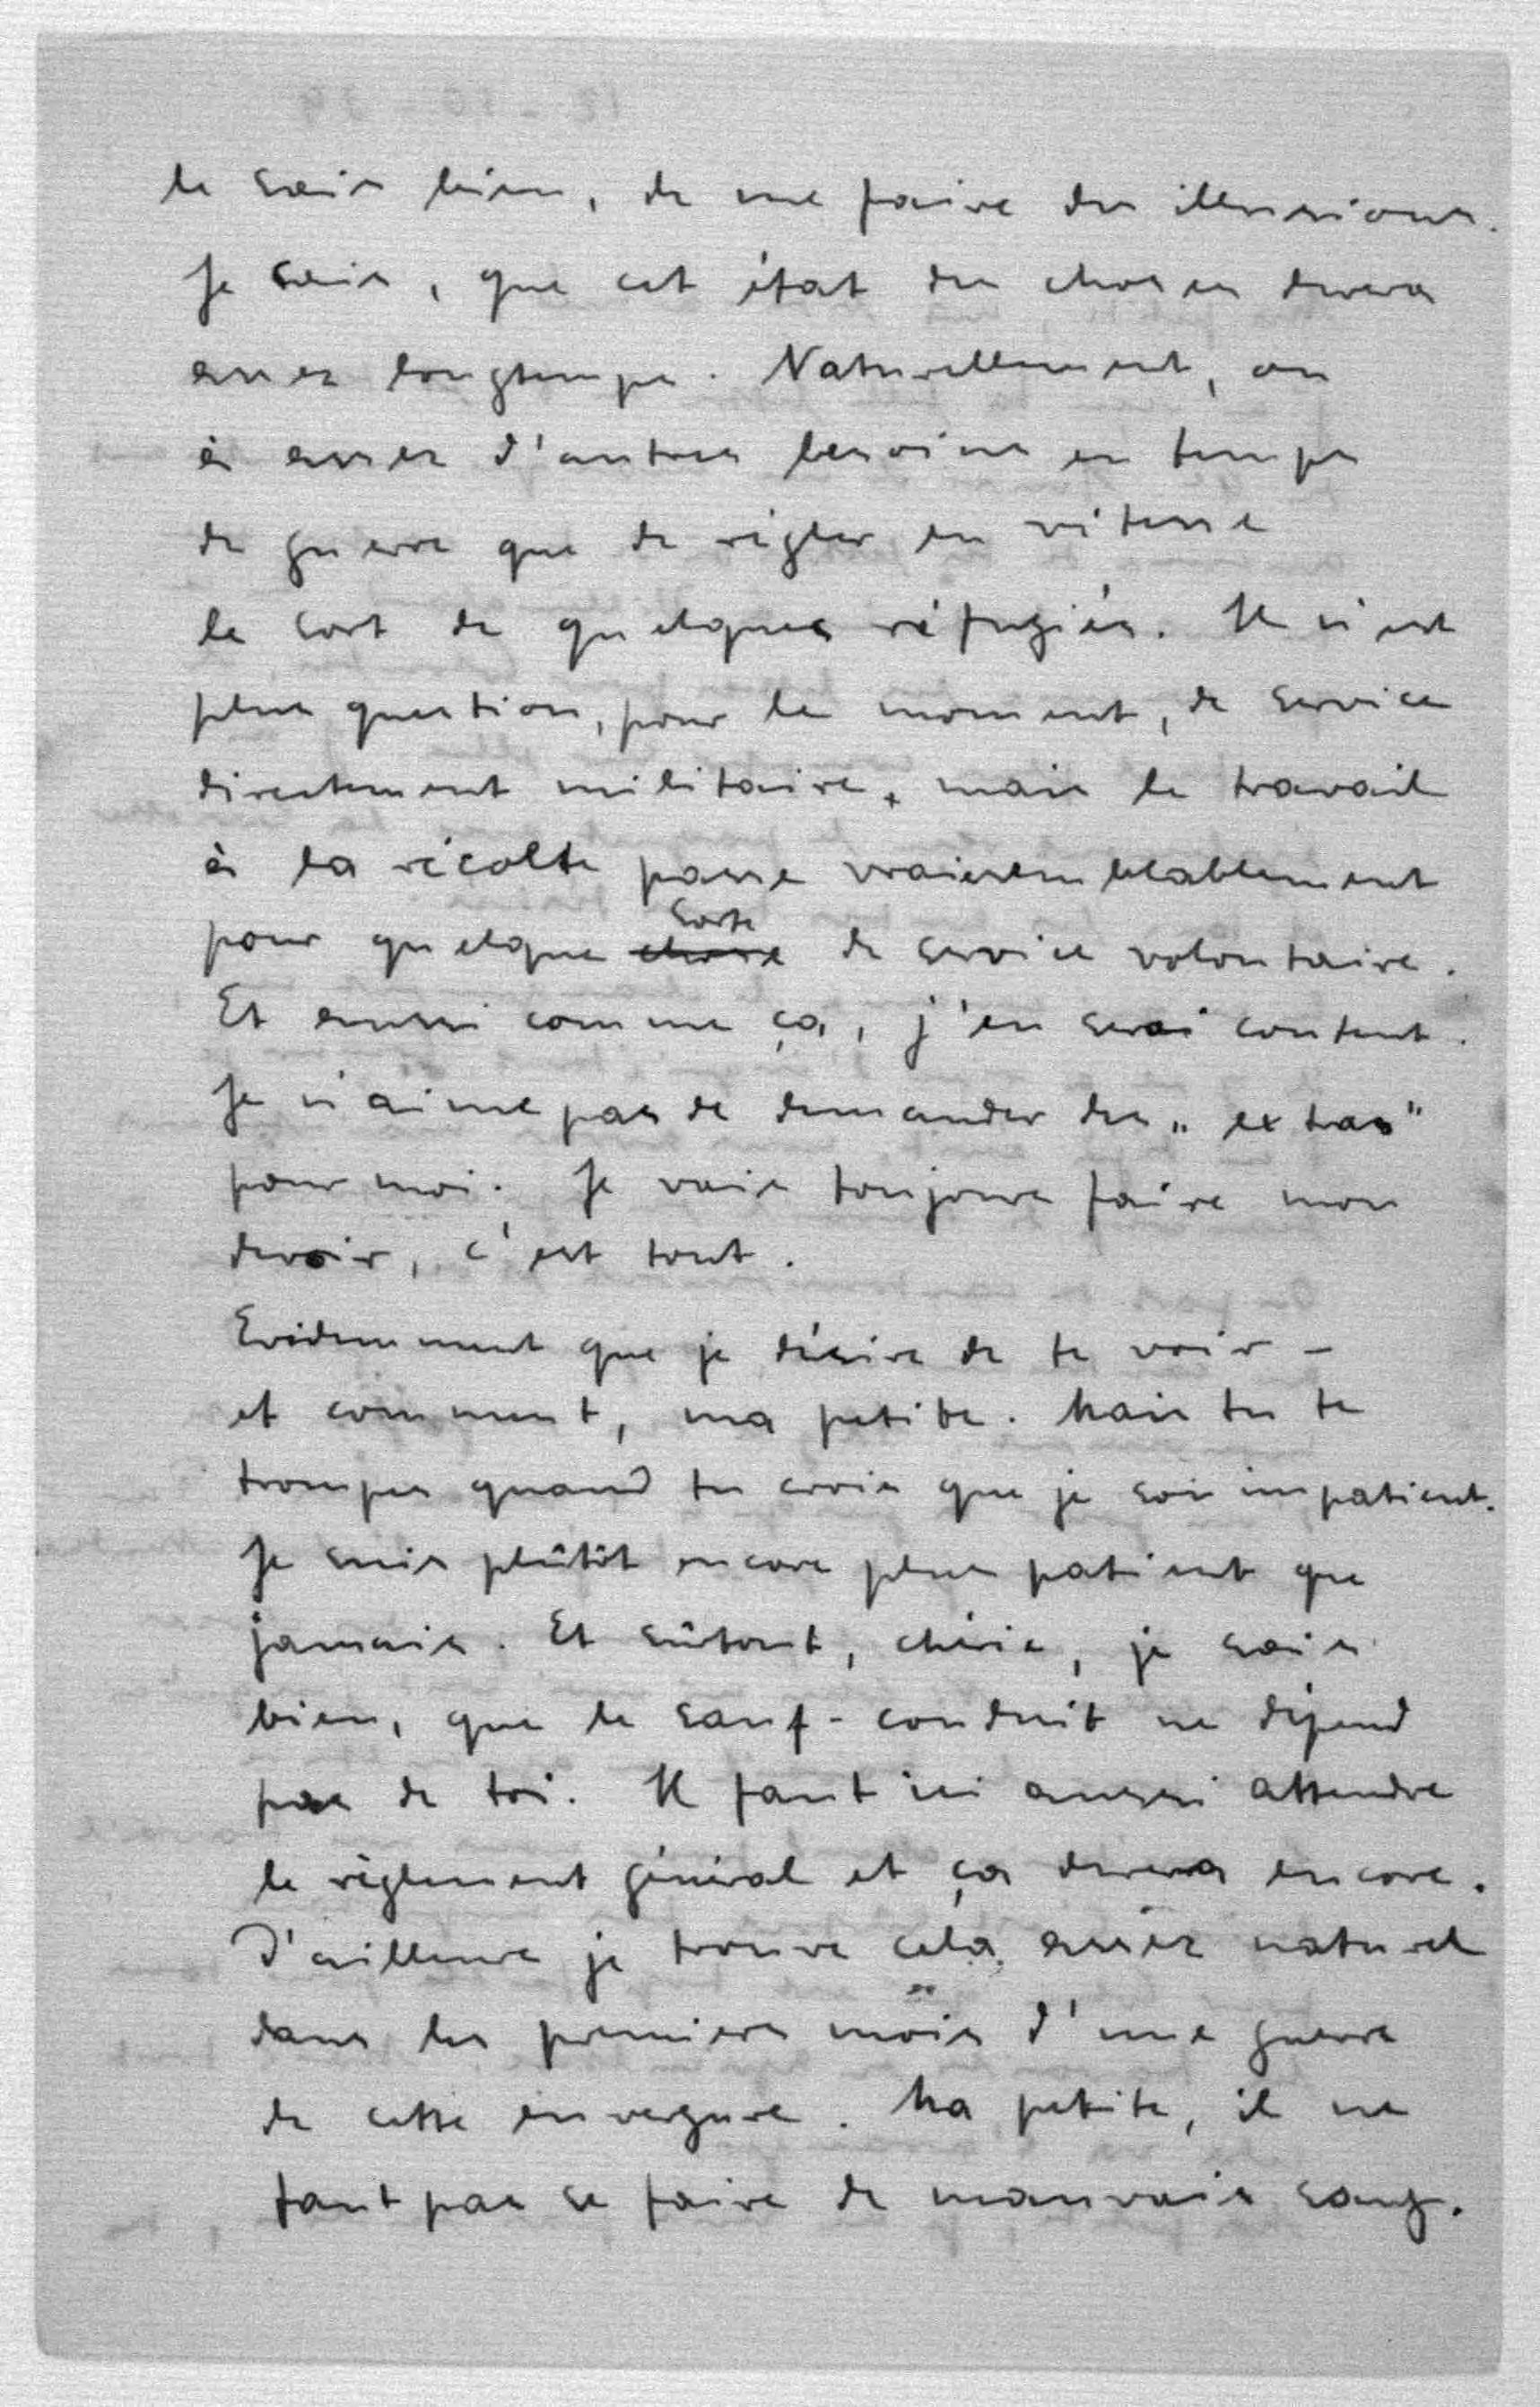 le sais bien, de me faire des illusions.
Je sais, que cet état des choses durera
assez longtemps. Naturellement, on
à assez d'autres besoins en temps
de guerre que de règler en vitesse
le sort de quelques réfugiés. Il n'est
plus question, pour le moment, de service
directement militaire, mais le travail
à la récolte passe vraisemblablement
pour quelque chose sorte de service volontaire.
Et aussi comme ça, j'en serai content.
Je n'aime pas de demander des „extras"
pour moi. Je vais toujours faire mon
devoir, c'est tout.
Evidemment que je désire de te voir –
et comment, ma petite. Mais tu te
trompes quand tu crois que je sois impatient.
Je suis plûtôt encore plus patient que
jamais. Et sûtout, chérie, je sais
bien, que le sauf-conduit ne dépend
pas de toi. Il faut ici aussi attendre
le règlement général et ça durera encore.
D'ailleurs je trouve cela assez naturel
dans les premiers mois d'une guerre
de cette envergure. Ma petite, il ne
faut pas se faire de mauvais sang.